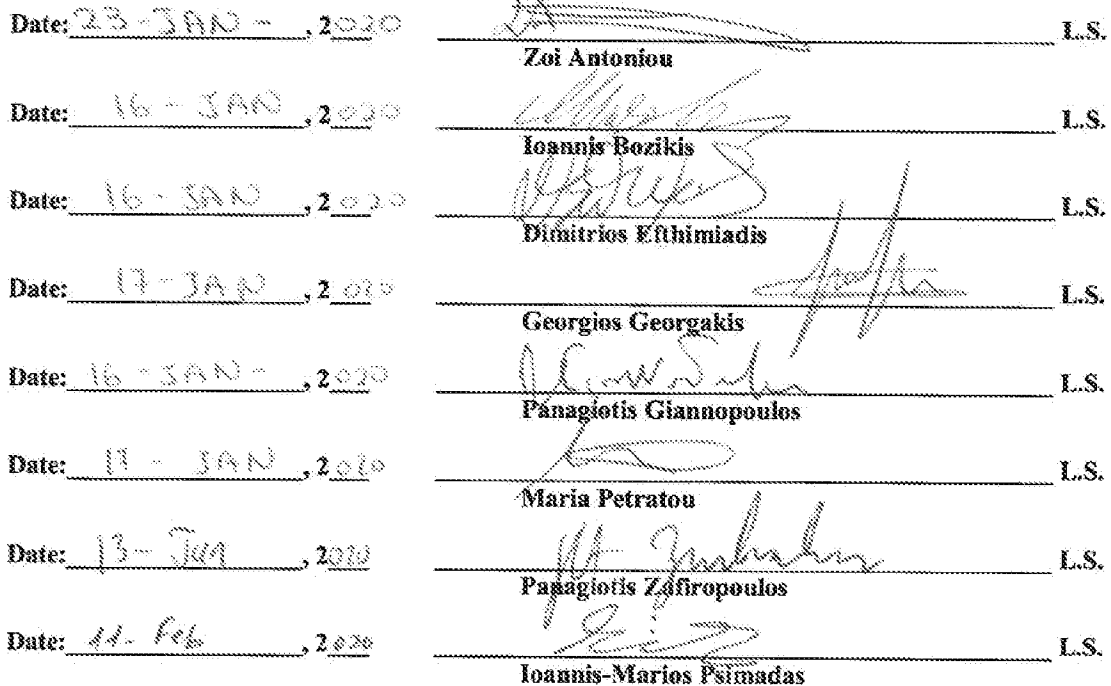 Date: 23-JAN-, 2020 L.S.
Zoi Antoniou
Date: 16-JAN, 2020 L.S.
Ioannis Bozikis
Date: 16-JAN, 2020 L.S.
Dimitrios Efthimiadis
Date: 17-JAN, 2020 L.S.
Georgios Georgakis
Date: 16-JAN-, 2020 L.S.
Panagiotis Giannopoulos
Date: 17-JAN, 2020 L.S.
Maria Petratou
Date: 13-, 2020 L.S.
Panagiotis Zafiropoulos
Date: 11-Feb, 2020 L.S.
Ioannis-Marios Psimadas